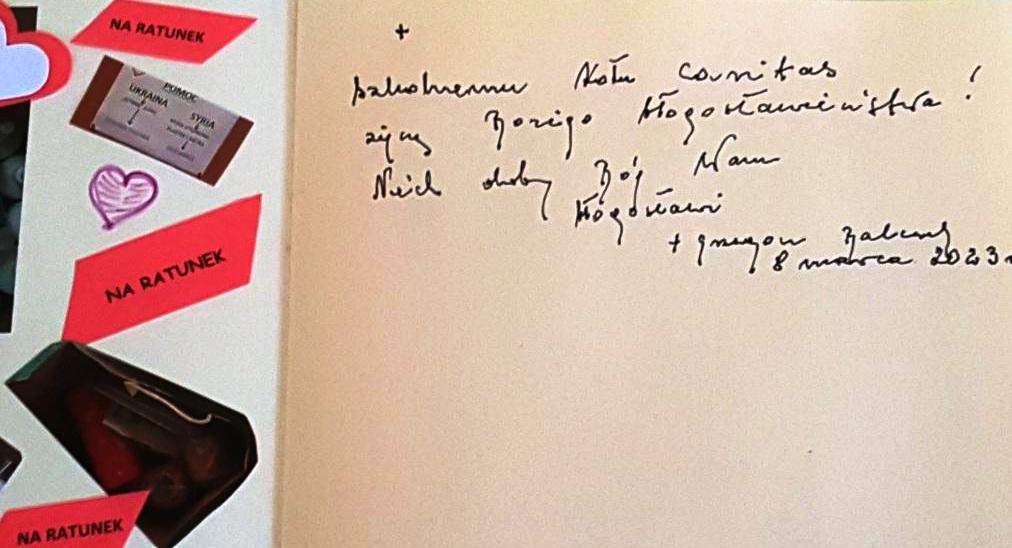 NA RATUNEK
POMOC
UKRAINA
SYRIA
NA RATUNEK
NA RATUNEK
+
Szkolnemu Kołu Caritas
życzę Bożego błogosławieństwa!
Niech dobry Bóg Wam
błogosławi
+ Grzegorz Balcerek
8 marca 2023 r